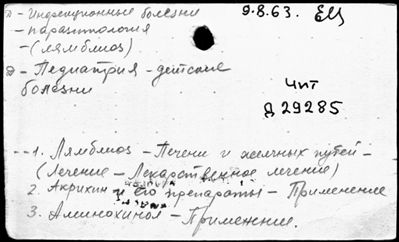 д - Инфекционные болезни
9.8.63. ЕЦ
- паразитология
- (лямблиоз)
д - Педиатрия - детские
болезни
Чит
Д 29285
1. Лямблиоз - Печени и желчных путей -
(Лечение - Лекарственное лечение)
2. Акрихин и его препараты - Применение
3. Аминохинол - Применение.